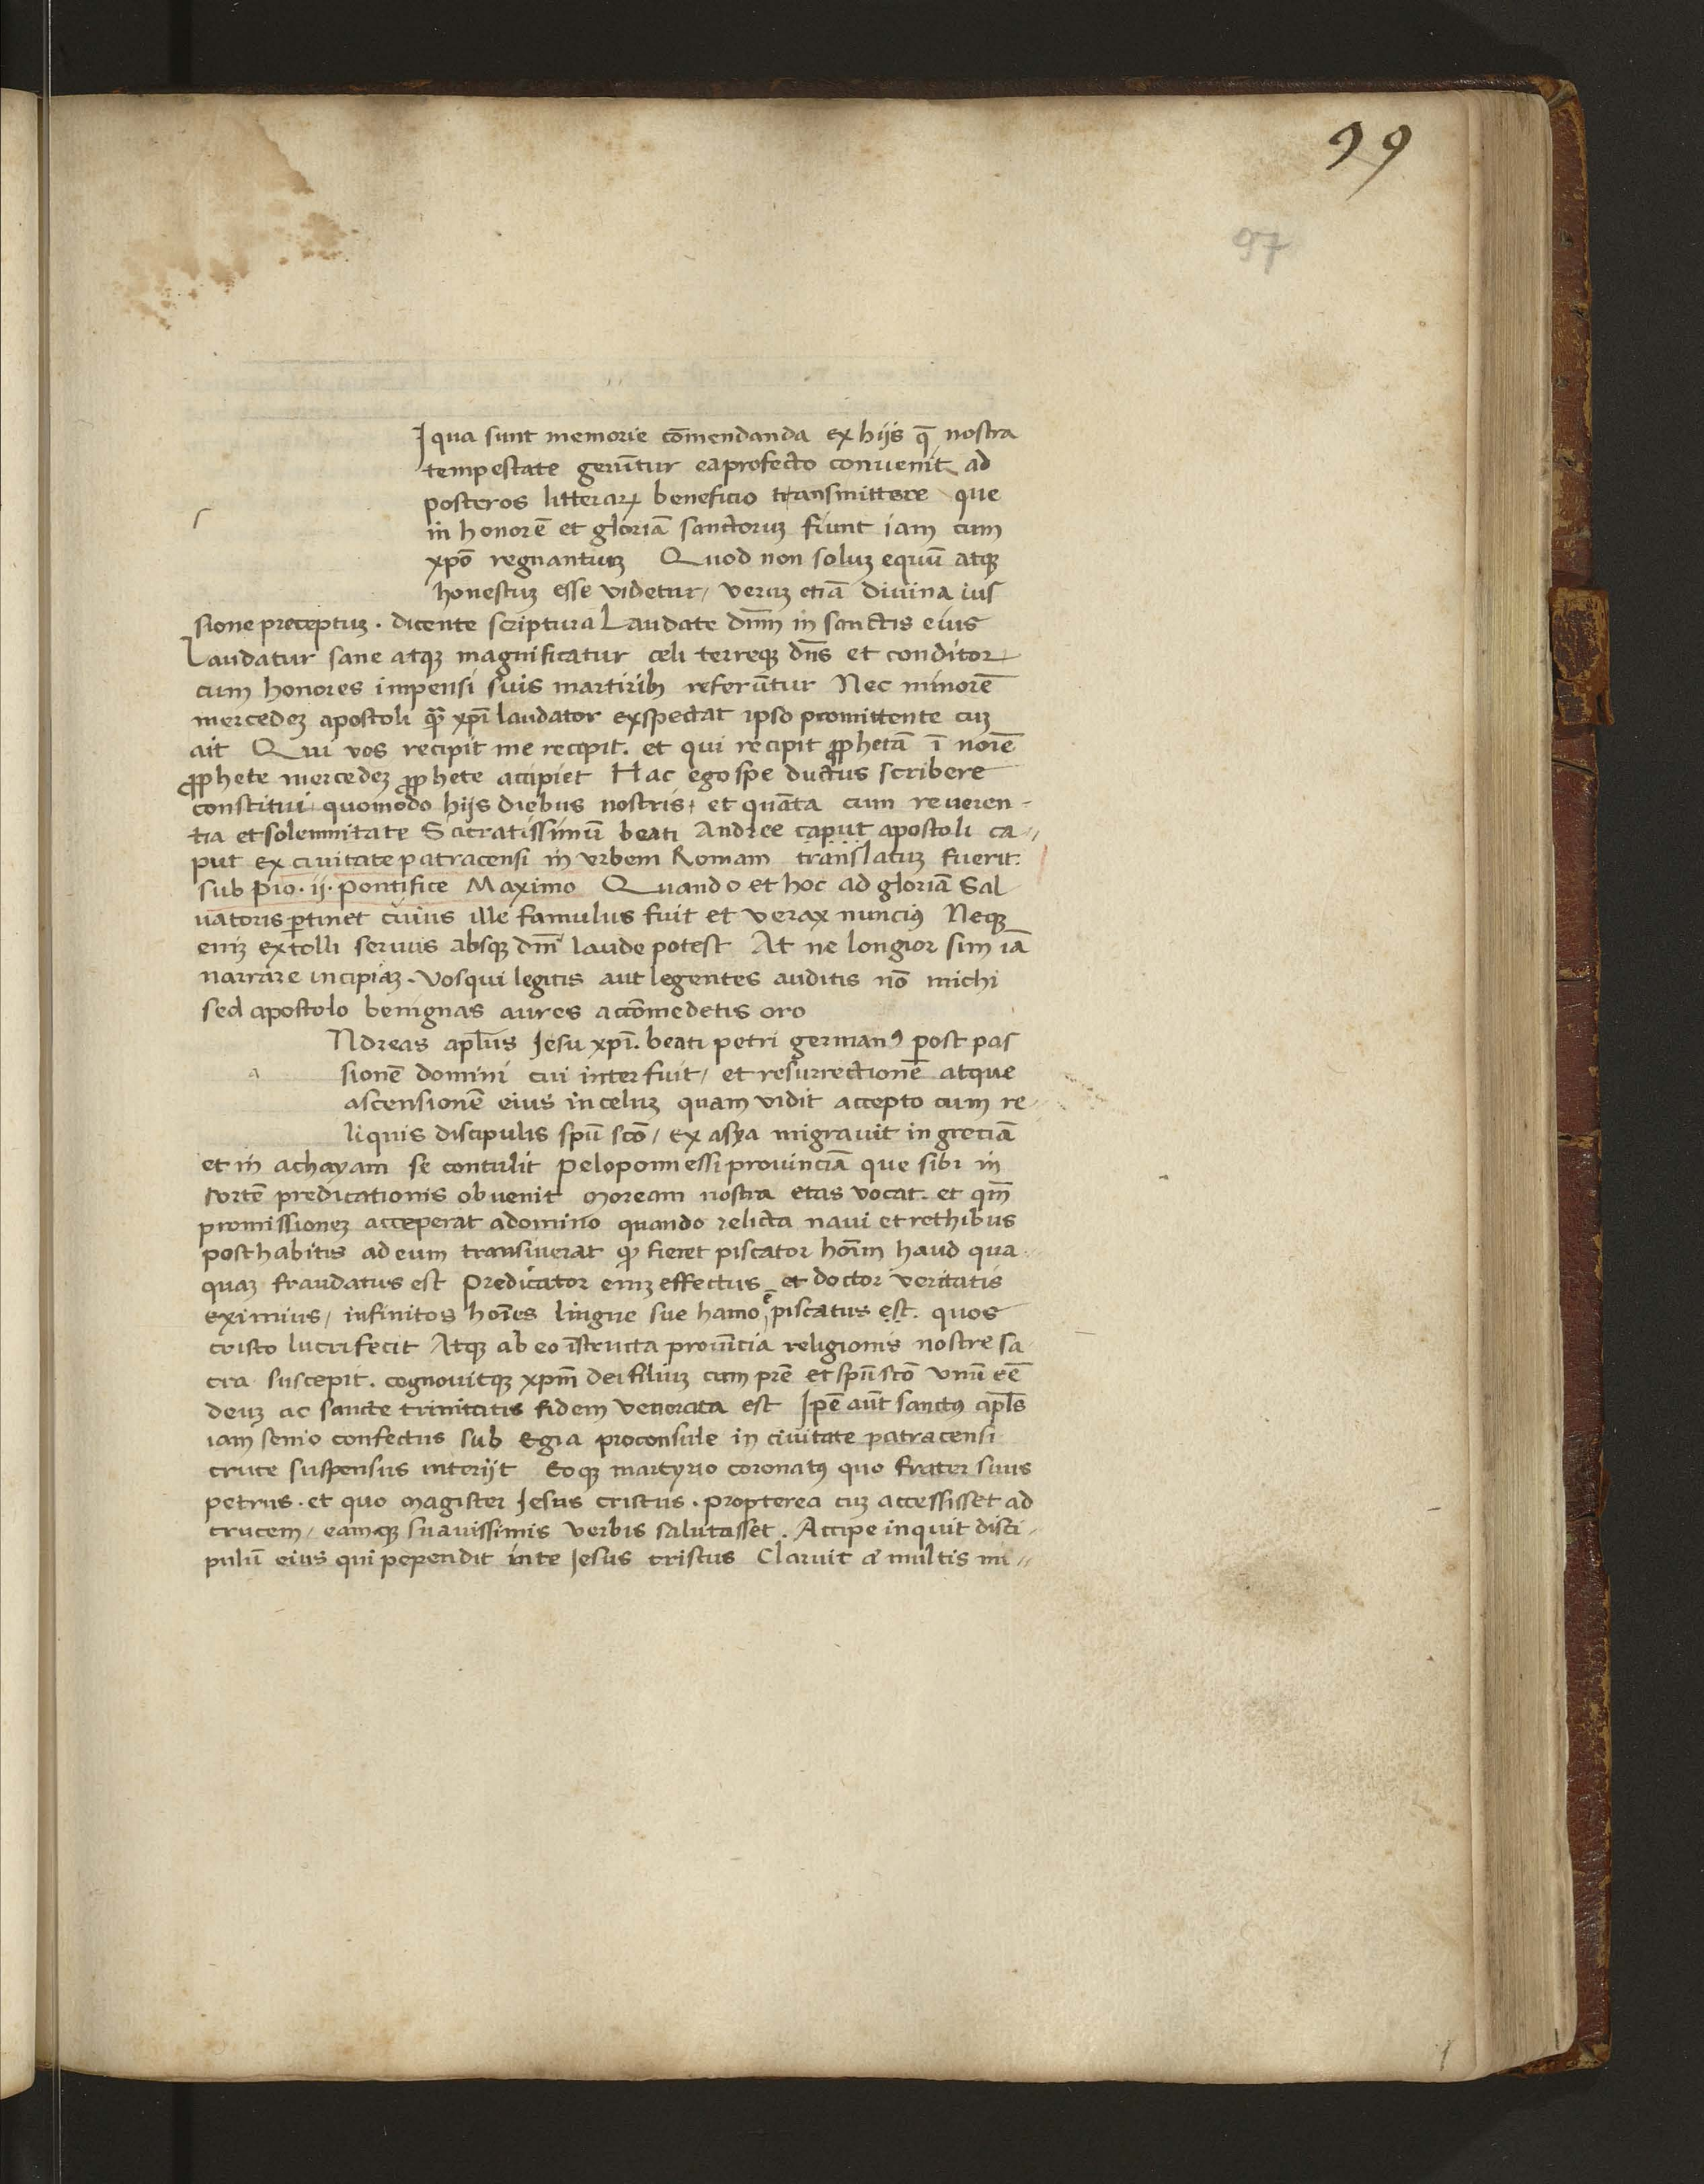 99
97
Iqua sunt memorie cōmendanda ex hijs q̄ nostra
tempestate gerūtur ea profecto conuenit ad
posteros litterarꝝ beneficio transmittere que
in honorē et gloriā sanctoruꝫ fiunt iam cum
xpō regnantiuꝫ Quod non soluꝫ equū atqꝫ
honestuꝫ esse videtur / veruꝫ etiā diuina ius
sione preceptuꝫ . dicente scriptura Laudate dn̄m in sanctis eius
Laudatur sane atqꝫ magnificatur celi terreqꝫ dn̄s et conditor
cum honores impensi suis martiribꝫ referūtur Nec minorē
mercedeꝫ apostoli qͣꝫ xp̄i laudator exspectat ipso promittente cuꝫ
ait Qui vos recipit me recipit . et qui recipit ꝓphetā ī noīe
ꝓphete mercedeꝫ ꝓphete accipiet Hac ego spe ductus scribere
constitui quomodo hijs diebus nostris / et quāta cum reueren-
tia et solemnitate Sacratissimū beati Andree caput apostoli ca〃
put ex ciuitate patracensi in vrbem Romam translatuꝫ fuerit:
sub Pio . ij . Pontifice Maximo Quando et hoc ad gloriā Sal
uatoris ꝑtinet cuius ille famulus fuit et verax nuncius Neqꝫ
eniꝫ extolli seruus absqꝫ dn̄i laude potest At ne longior sim iā
narrare incipiaꝫ . Vos qui legitis aut legentes auditis nō michi
sed apostolo benignas aures accōmedetis oro
a
Ndreas apl̄us Jesu xp̄i . beati petri germanꝰ post pas
sionē domini cui interfuit / et resurrectionē atque
ascensionē eius in celuꝫ quam vidit accepto cum re
liquis discipulis spū scō / ex asya migrauit in greciā
et in achayam se contulit Peloponnessi prouinciā que sibi in
sortē predicationis obuenit Moream nostra etas vocat . et qm̄
promissioneꝫ acceperat adomino quando relicta naui et rethibus
posthabitis ad eum transiuerat qͩ fieret piscator hoīm haud qua〃
quaꝫ fraudatus est Predicator eniꝫ effectus et doctor veritatis
eximius / infinitos hoīes lingue sue hamo ē piscatus est . quos
cristo lucrifecit Atqꝫ ab eo īstructa prouīcia religionis nostre sa
cra suscepit . cognouitqꝫ xpm̄ dei filiuꝫ cum prē et spū scō vnū eē
deuꝫ ac sancte trinitatis fidem venerata est Ipē aūt sanctꝰ apl̄s
iam senio confectus sub Egia proconsule in ciuitate patracensi
cruce suspensus interijt Eoqꝫ martyrio coronatꝰ quo frater suus
petrus . et quo magister Jesus cristus . propterea cuꝫ accessisset ad
crucem / eamqꝫ suauissimis verbis salutasset . Accipe inquit disci〃
pulū eius qui pependit in te Jesus cristus Claruit multis mi〃